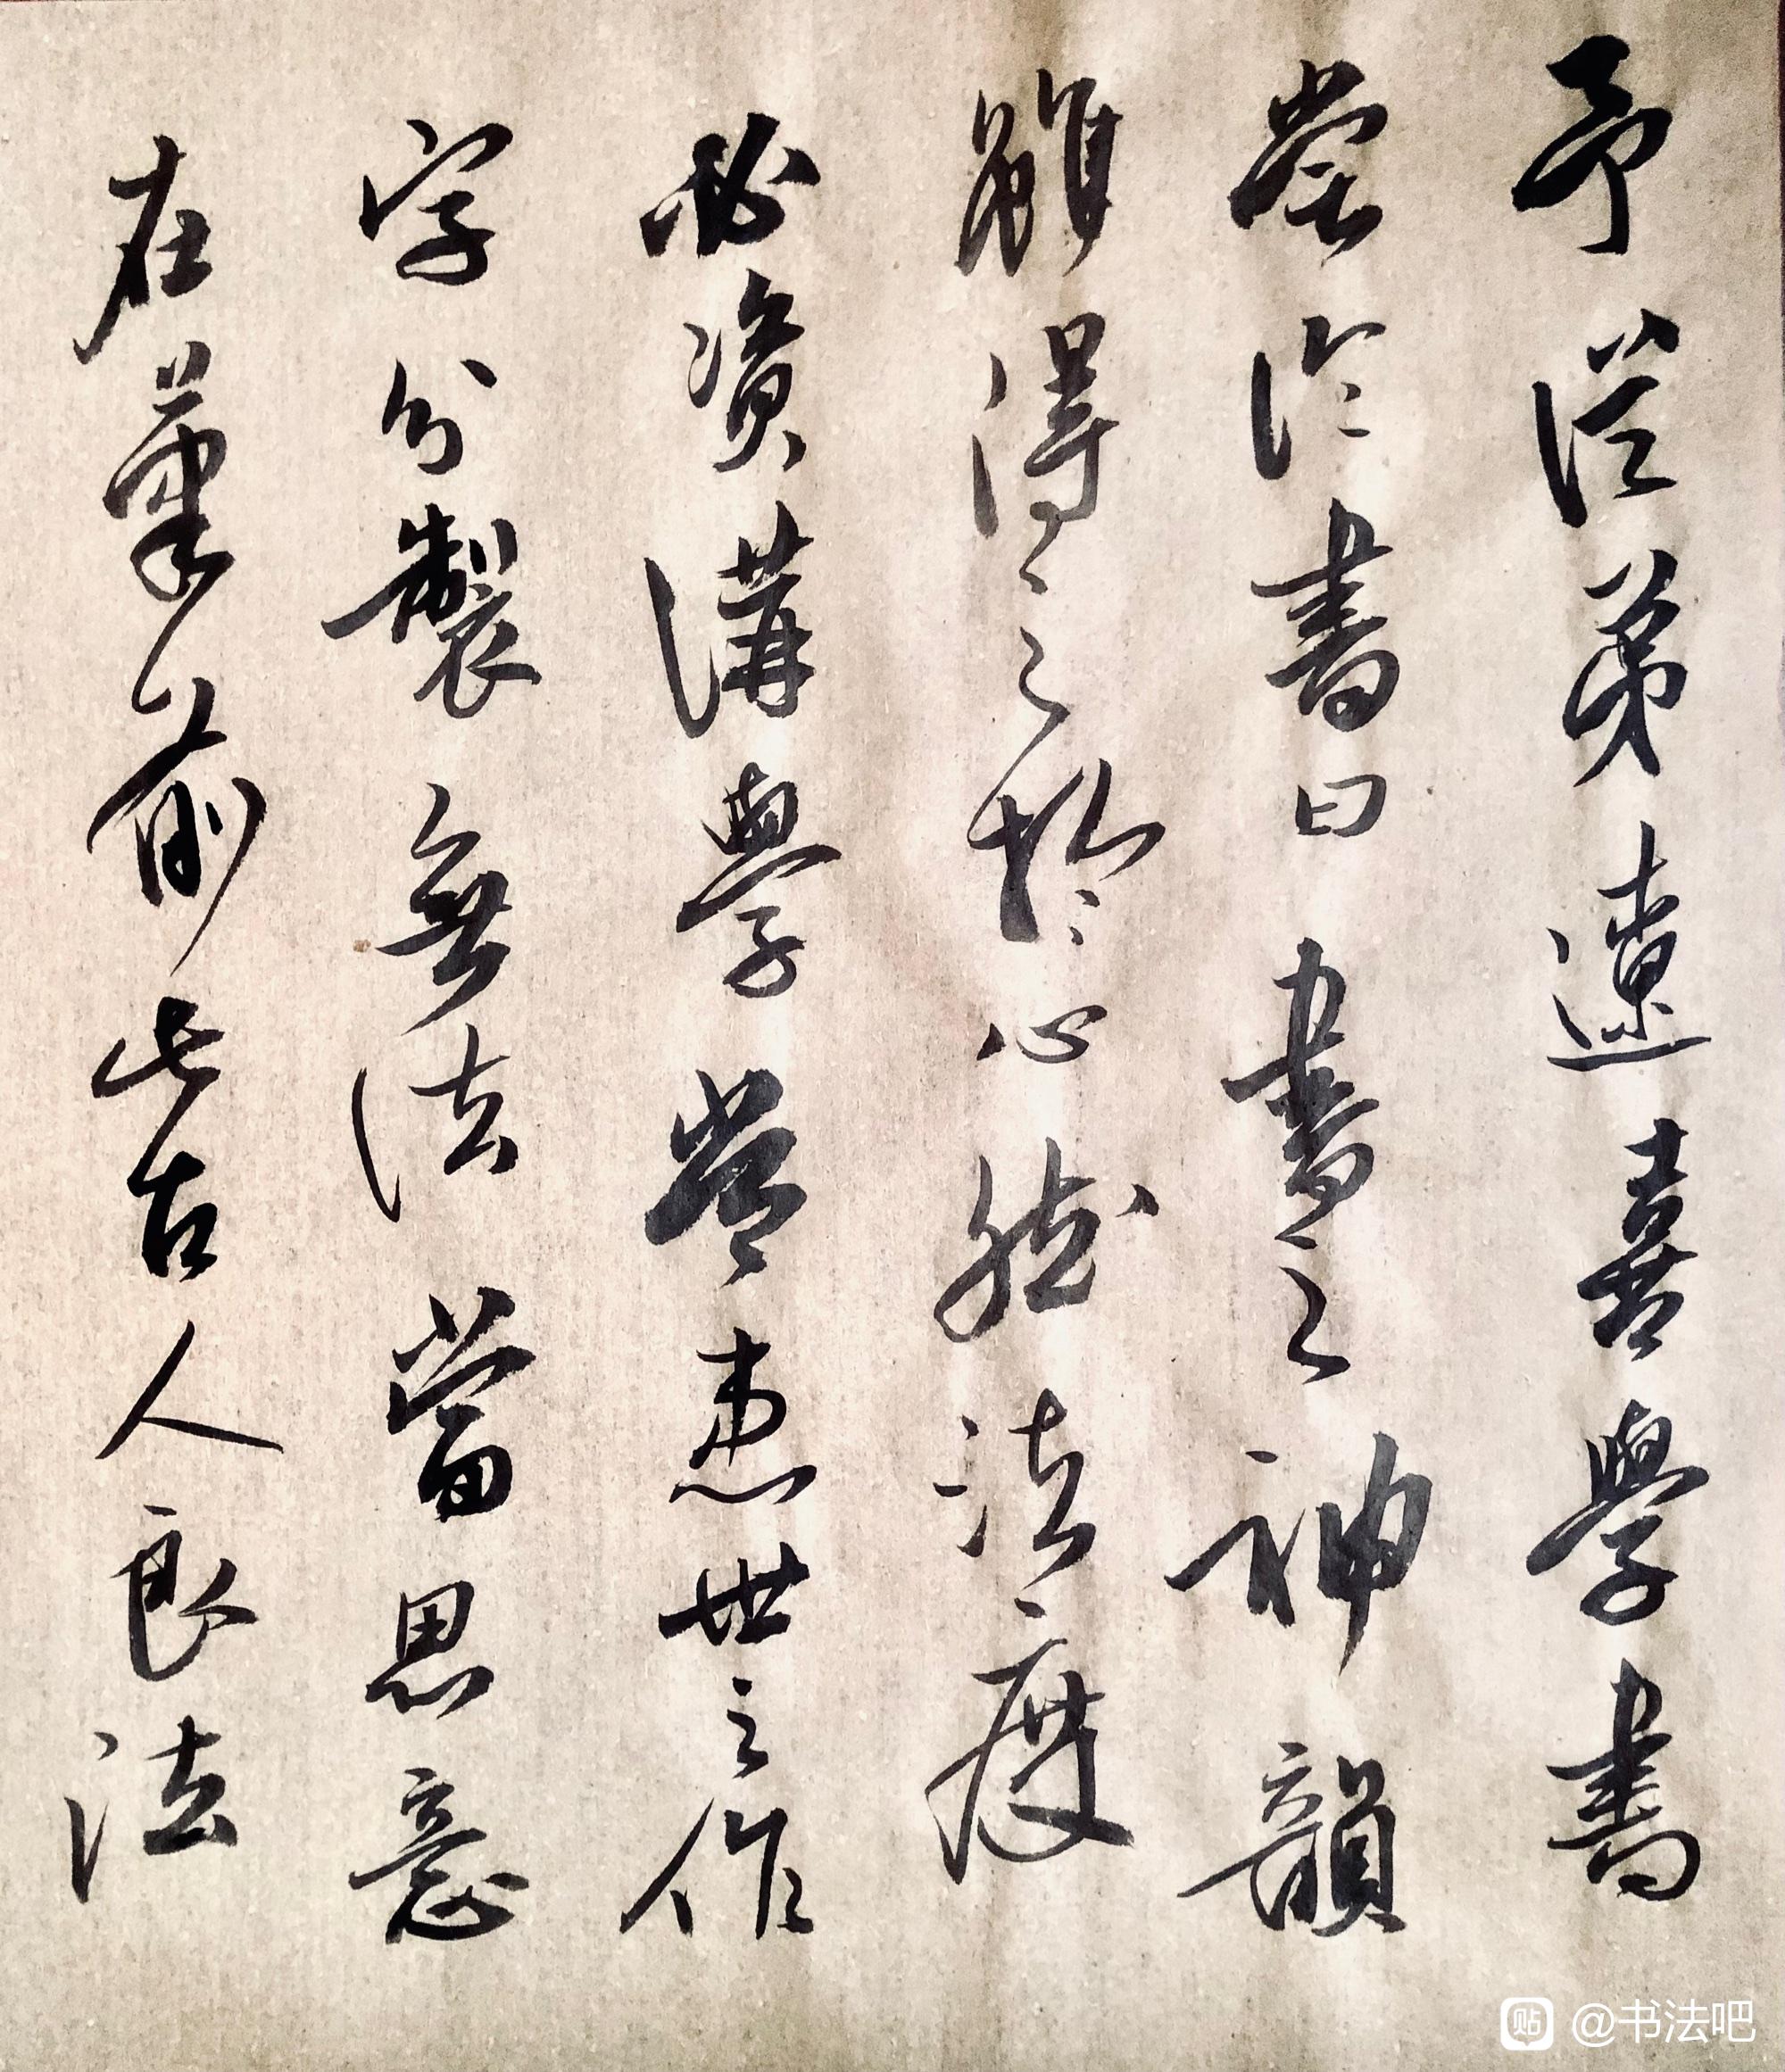 予從弟遼喜學書
嘗論書曰書之神韻
雖得之於心然法度
必資講學嘗患世之作
字分製無法當思意
在筆前此古人良法
貼 @书法吧